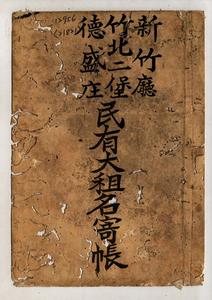 新竹廳
竹北二堡
德盛庄
民有大租名寄帳